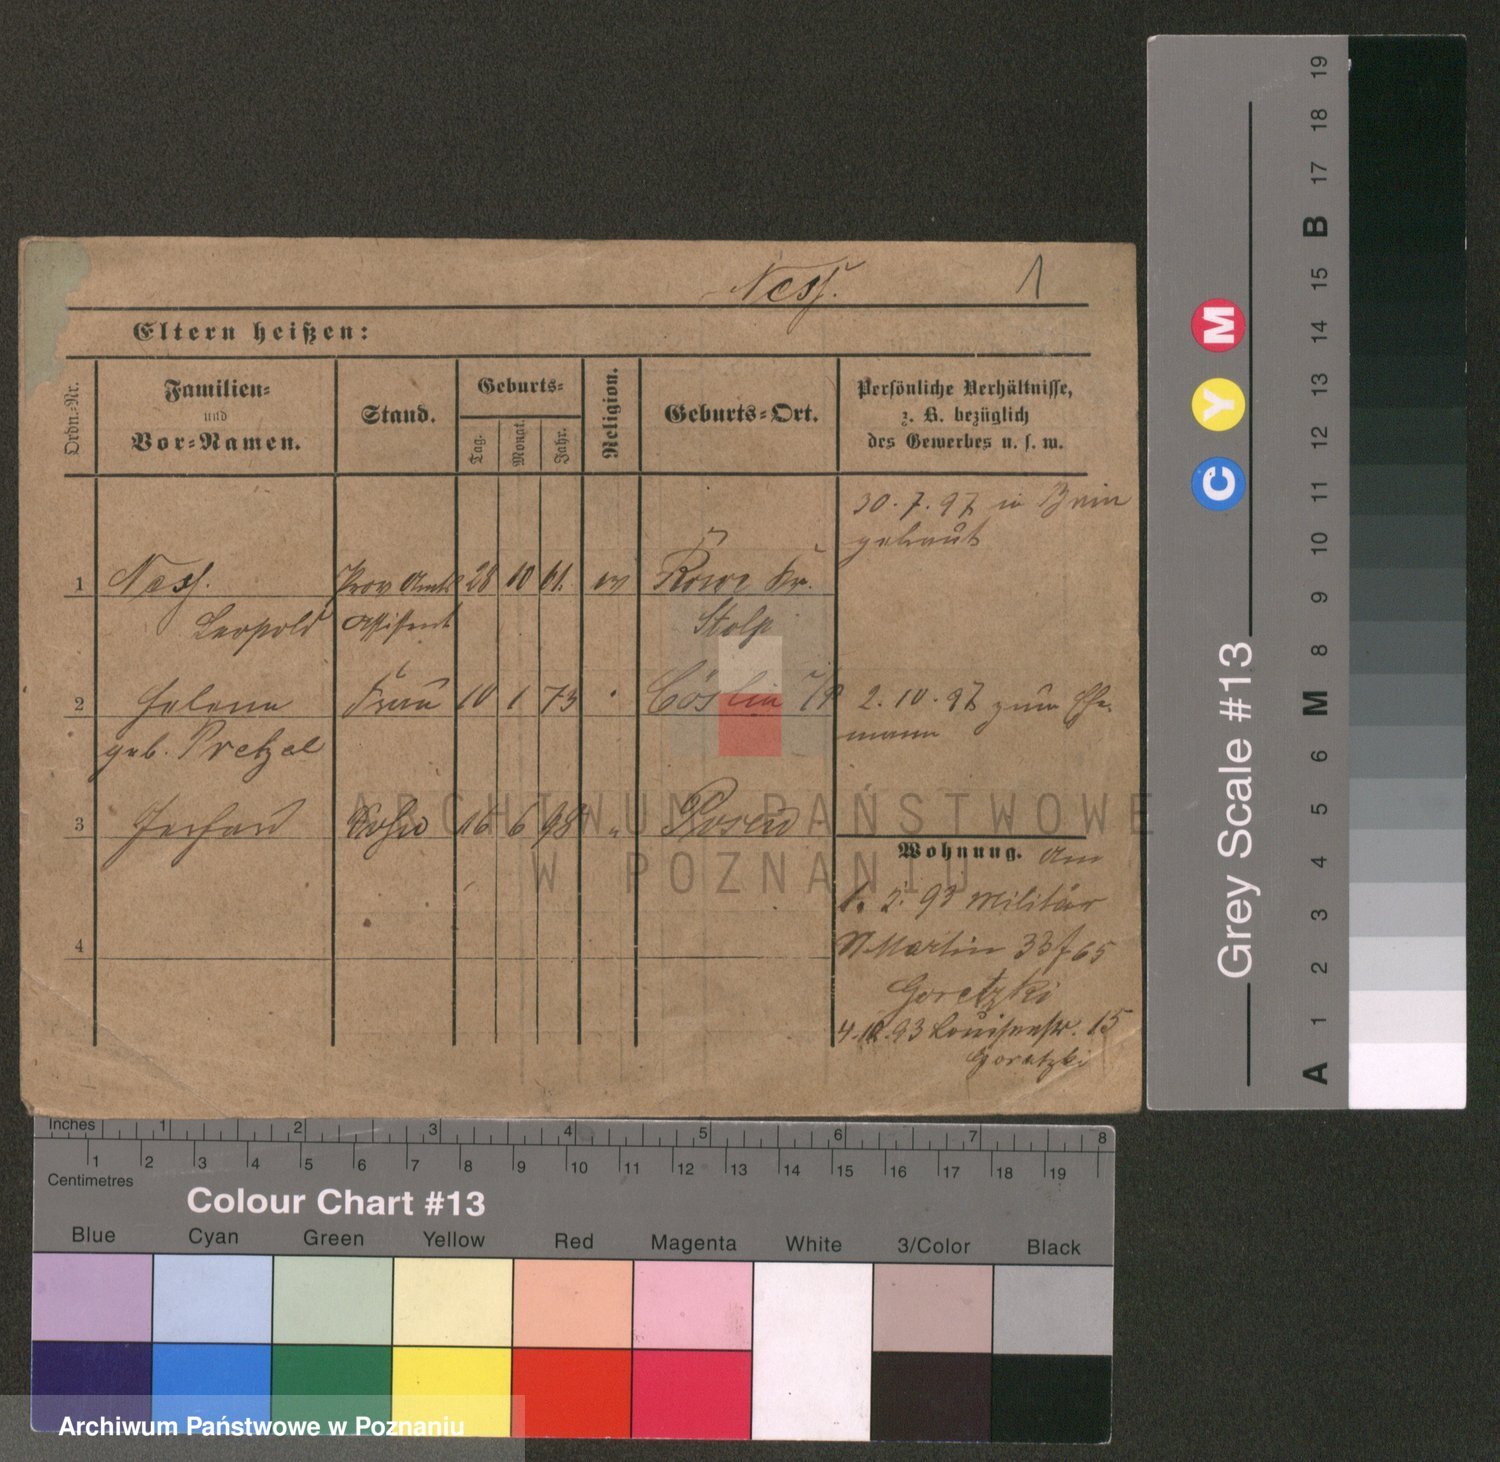 Ness. 1
Eltern heißen:
Ordn.-Nr. Familien- und Vor-Namen. Stand. Geburts- Tag. Monat. Jahr. Religion. Geburts-Ort. Persönliche Verhältnisse, z. B. bezüglich des Gewerbes u. s. w.
30.7.97 in
getraut
1 Ness. Prov Amts 28 10 61. ev Rowe Kr.
Leopold Assistent Stolp
2 Helene Frau 10 1 73 Cöslin 2.10.97 zum Ehe-
geb. Pretzel mann
3 Gerhard Sohn 16 6 98 " Posen
Wohnung. Am
1. 2. 93 Militär
4 St Martin 33 f 65
Goretzki
4.10.93 Louisenstr. 15
Goretzki
ARCHIWUM PAŃSTWOWE
W POZNANIU
Grey Scale #13
C Y M
A 1 2 3 4 5 6 M 8 9 10 11 12 13 14 15 B 17 18 19
Inches 1 2 3 4 5 6 7 8
Centimetres 1 2 3 4 5 6 7 8 9 10 11 12 13 14 15 16 17 18 19
Colour Chart #13
Blue Cyan Green Yellow Red Magenta White 3/Color Black
Archiwum Państwowe w Poznaniu